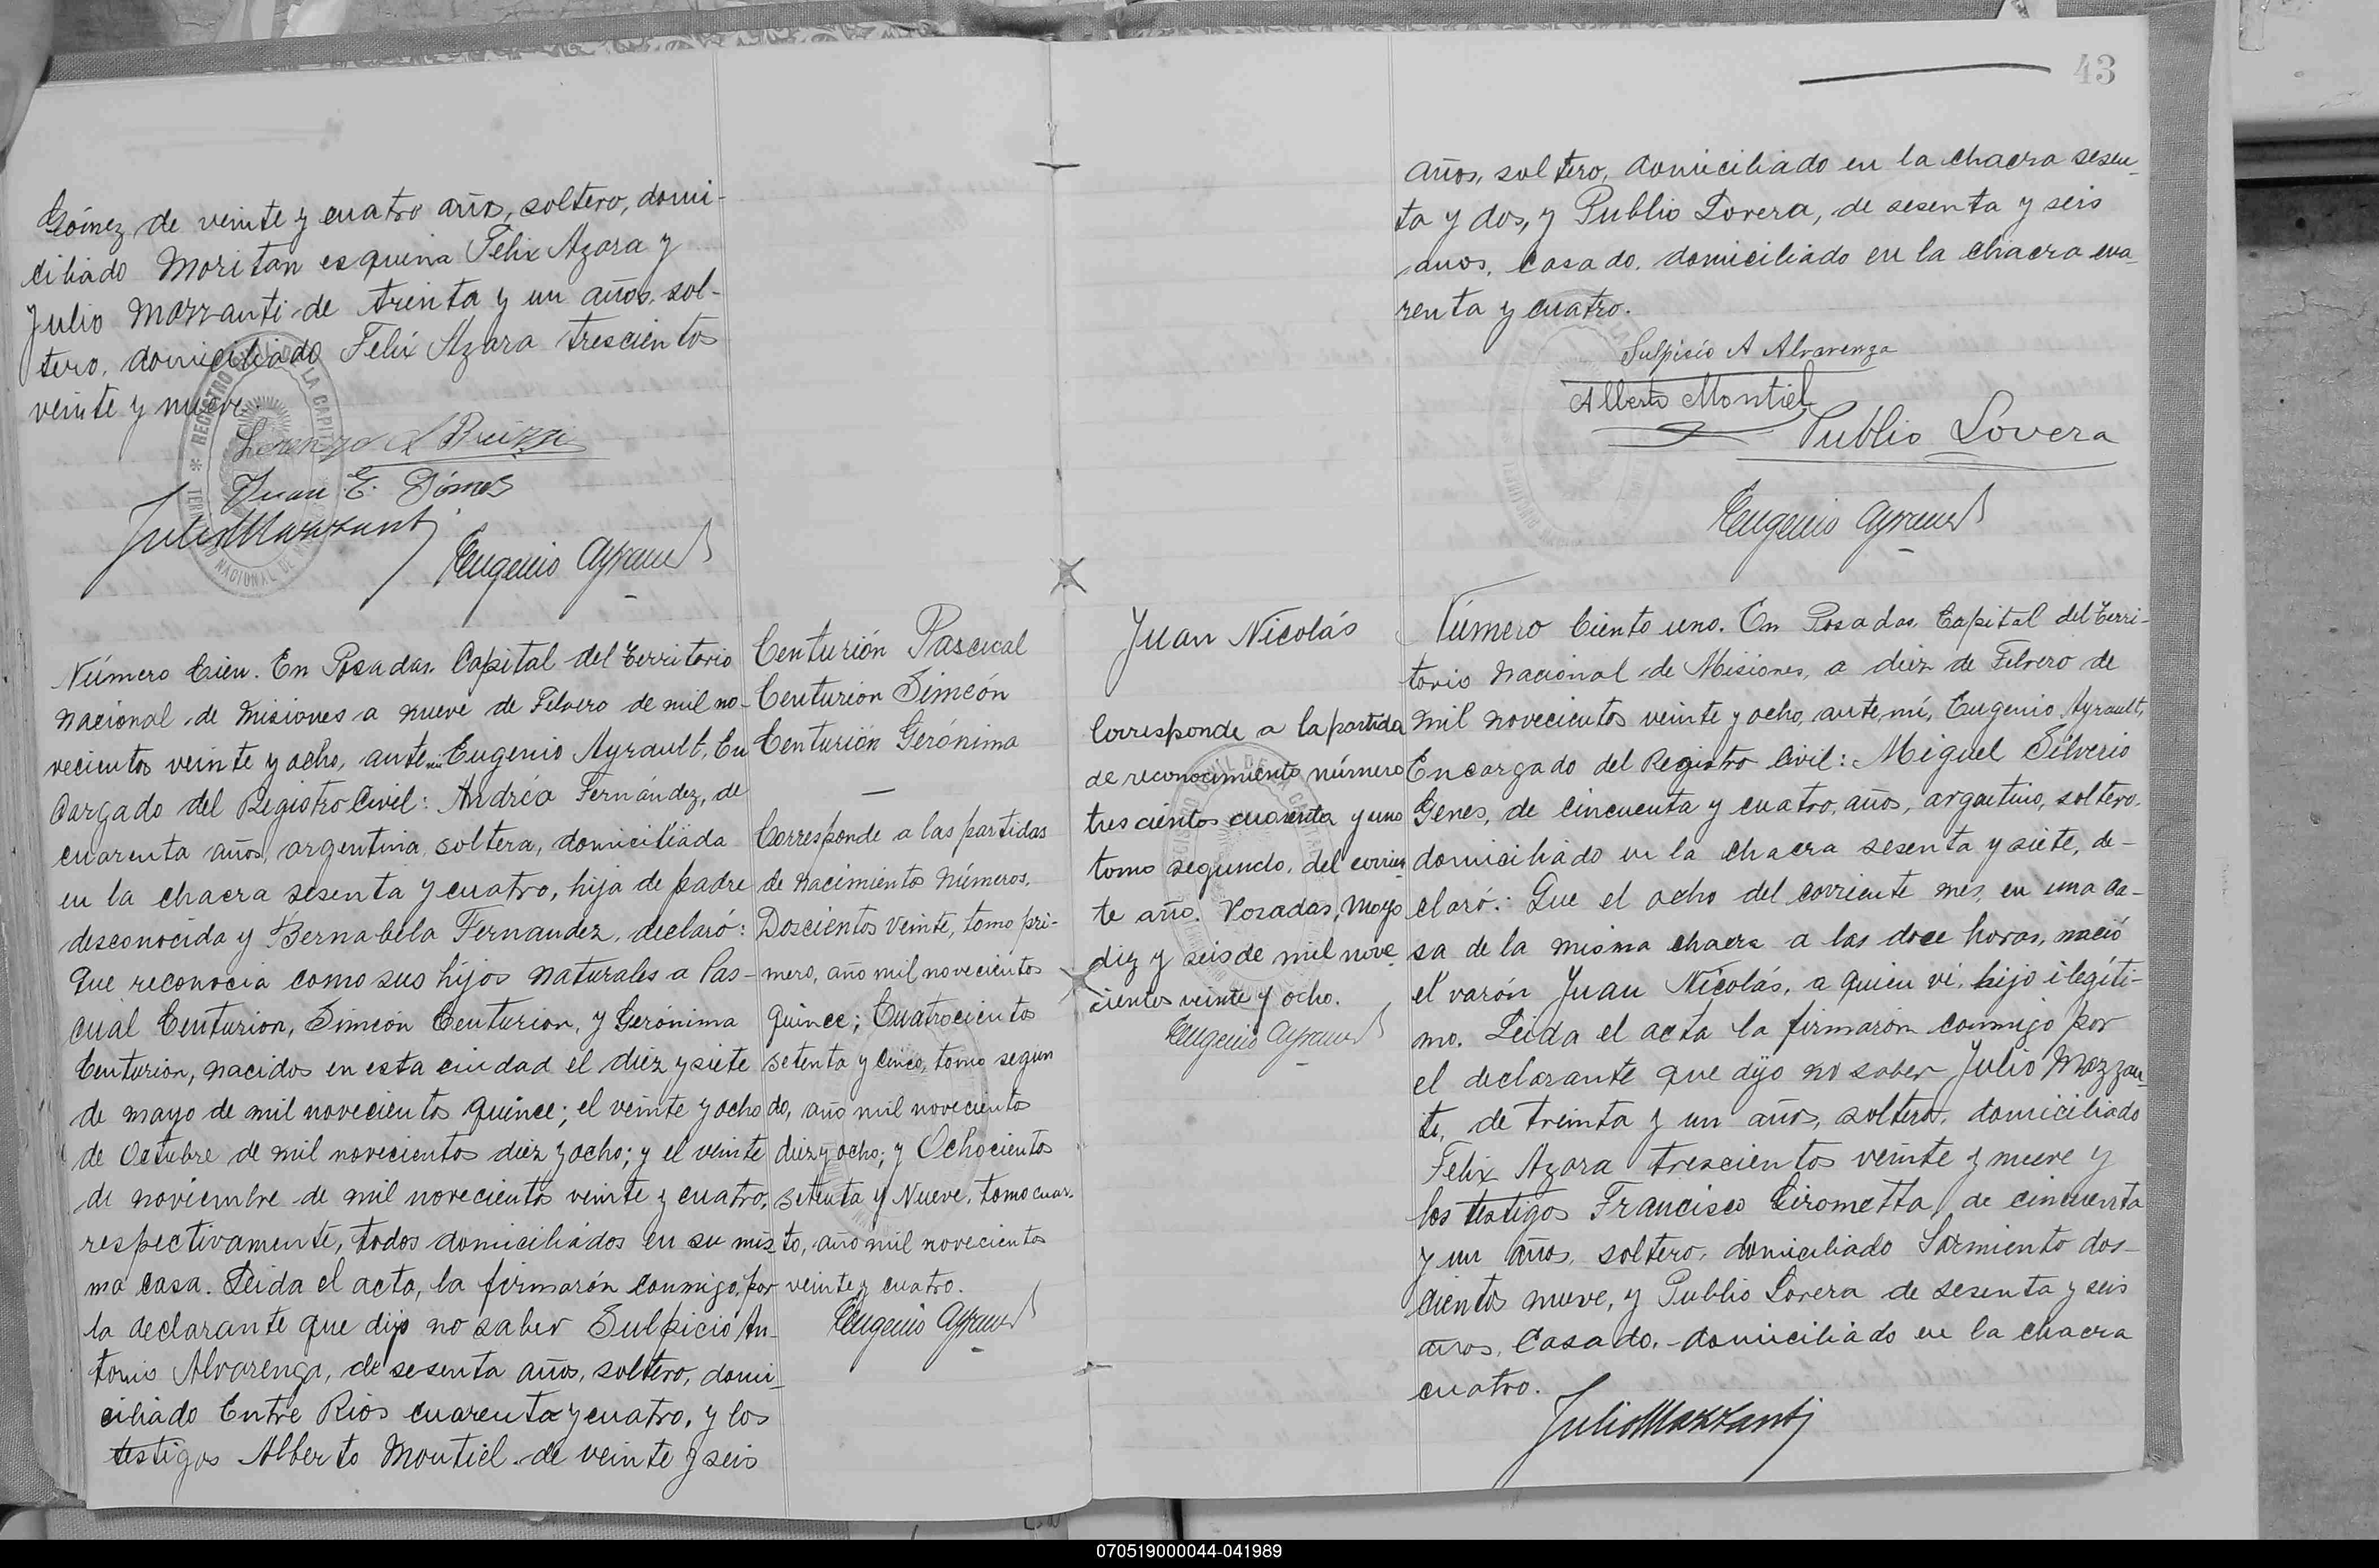 Gómez de veinte y cuatro años, soltero, domi-
ciliado Moritan esquina Felix Azara y
Julio Mazzanti de treinta y un años, sol-
tero, domiciliado Felix Azara trescientos
veinte y nueve.
Juan E. Gómez
Julio Mazzanti
Eugenio Ayrault
Número Cien. En Posadas, Capital del Territorio
Nacional de Misiones a nueve de Febrero de mil no-
vecientos veinte y ocho, ante mi Eugenio Ayrault, En
cargado del Registro Civil: Andréa Fernández, de
cuarenta años, argentina, soltera, domiciliada
en la chacra sesenta y cuatro, hija de padre
desconocido y Bernabela Fernandez, declaró:
Que reconocia como sus hijos naturales a Pas-
cual Centurion, Simeón Centurion, y Gerónima
Centurion, nacidos en esta ciudad el diez y siete
de mayo de mil novecientos quince; el veinte y ocho
de Octubre de mil novecientos diez y ocho; y el veinte
de noviembre de mil novecientos veinte y cuatro,
respectivamente, todos domiciliados en su mis-
ma casa. Leida el acta, la firmarón conmigo, por
la declarante que dijo no saber Sulpicio An-
tonio Alvarenga, de sesenta años, soltero, domi-
ciliado Entre Rios cuarenta y cuatro, y los
testigos Alberto Montiel de veinte y seis
Centurión Pascual
Centurion Simeón
Centurión Gerónima
Corresponde a las partidas
de nacimientos Números.
Doscientos veinte, tomo pri-
mero, año mil novecientos
quince; Cuatrocientos
setenta y cinco, tomo segun
do, año mil novecientos
diez y ocho; y Ochocientos
setenta y Nueve, tomo cuar-
to, año mil novecientos
veinte y cuatro.
Eugenio Ayrault
43
años, soltero, domiciliado en la chacra sesen-
ta y dos, y Publio Lovera, de sesenta y seis
años, casado, domiciliado en la chacra cua-
renta y cuatro.
Sulpicio A Alvarenga
Alberto Montiel
Publio Lovera
Eugenio Ayrault
Juan Nicolás
Corresponde a la partida
de reconocimiento número
trescientos cuarenta y uno
tomo segundo, del corrien
te año. Posadas, Mayo
diez y seis de mil nove-
cientos veinte y ocho.
Eugenio Ayrault
Número Ciento uno. En Posadas, Capital del Terri-
torio Nacional de Misiones, a diez de Febrero de
mil novecientos veinte y ocho, ante mí, Eugenio Ayrault,
Encargado del Registro Civil: Miguel Silverio
Genes, de cincuenta y cuatro, años, argentino, soltero,
domiciliado en la chacra sesenta y siete, de-
claró: Que el ocho del corriente mes, en una ca-
sa de la misma chacra a las doce horas, nació
el varón Juan Nicolás, a quien ví, hijo ilegíti-
mo. Leida el acta la firmarón conmigo por
el declarante que dijo no saber Julio Mazzan-
ti, de treinta y un años, soltero, domiciliado
Felix Azara trescientos veinte y nueve y
los testigos Francisco Cirometta, de cincuenta
y un años, soltero, domiciliado Sarmiento dos-
cientos nueve, y Publio Lovera de sesenta y seis
años, casado, domiciliado en la chacra
cuatro.
Julio Mazzanti
070519000044-041989